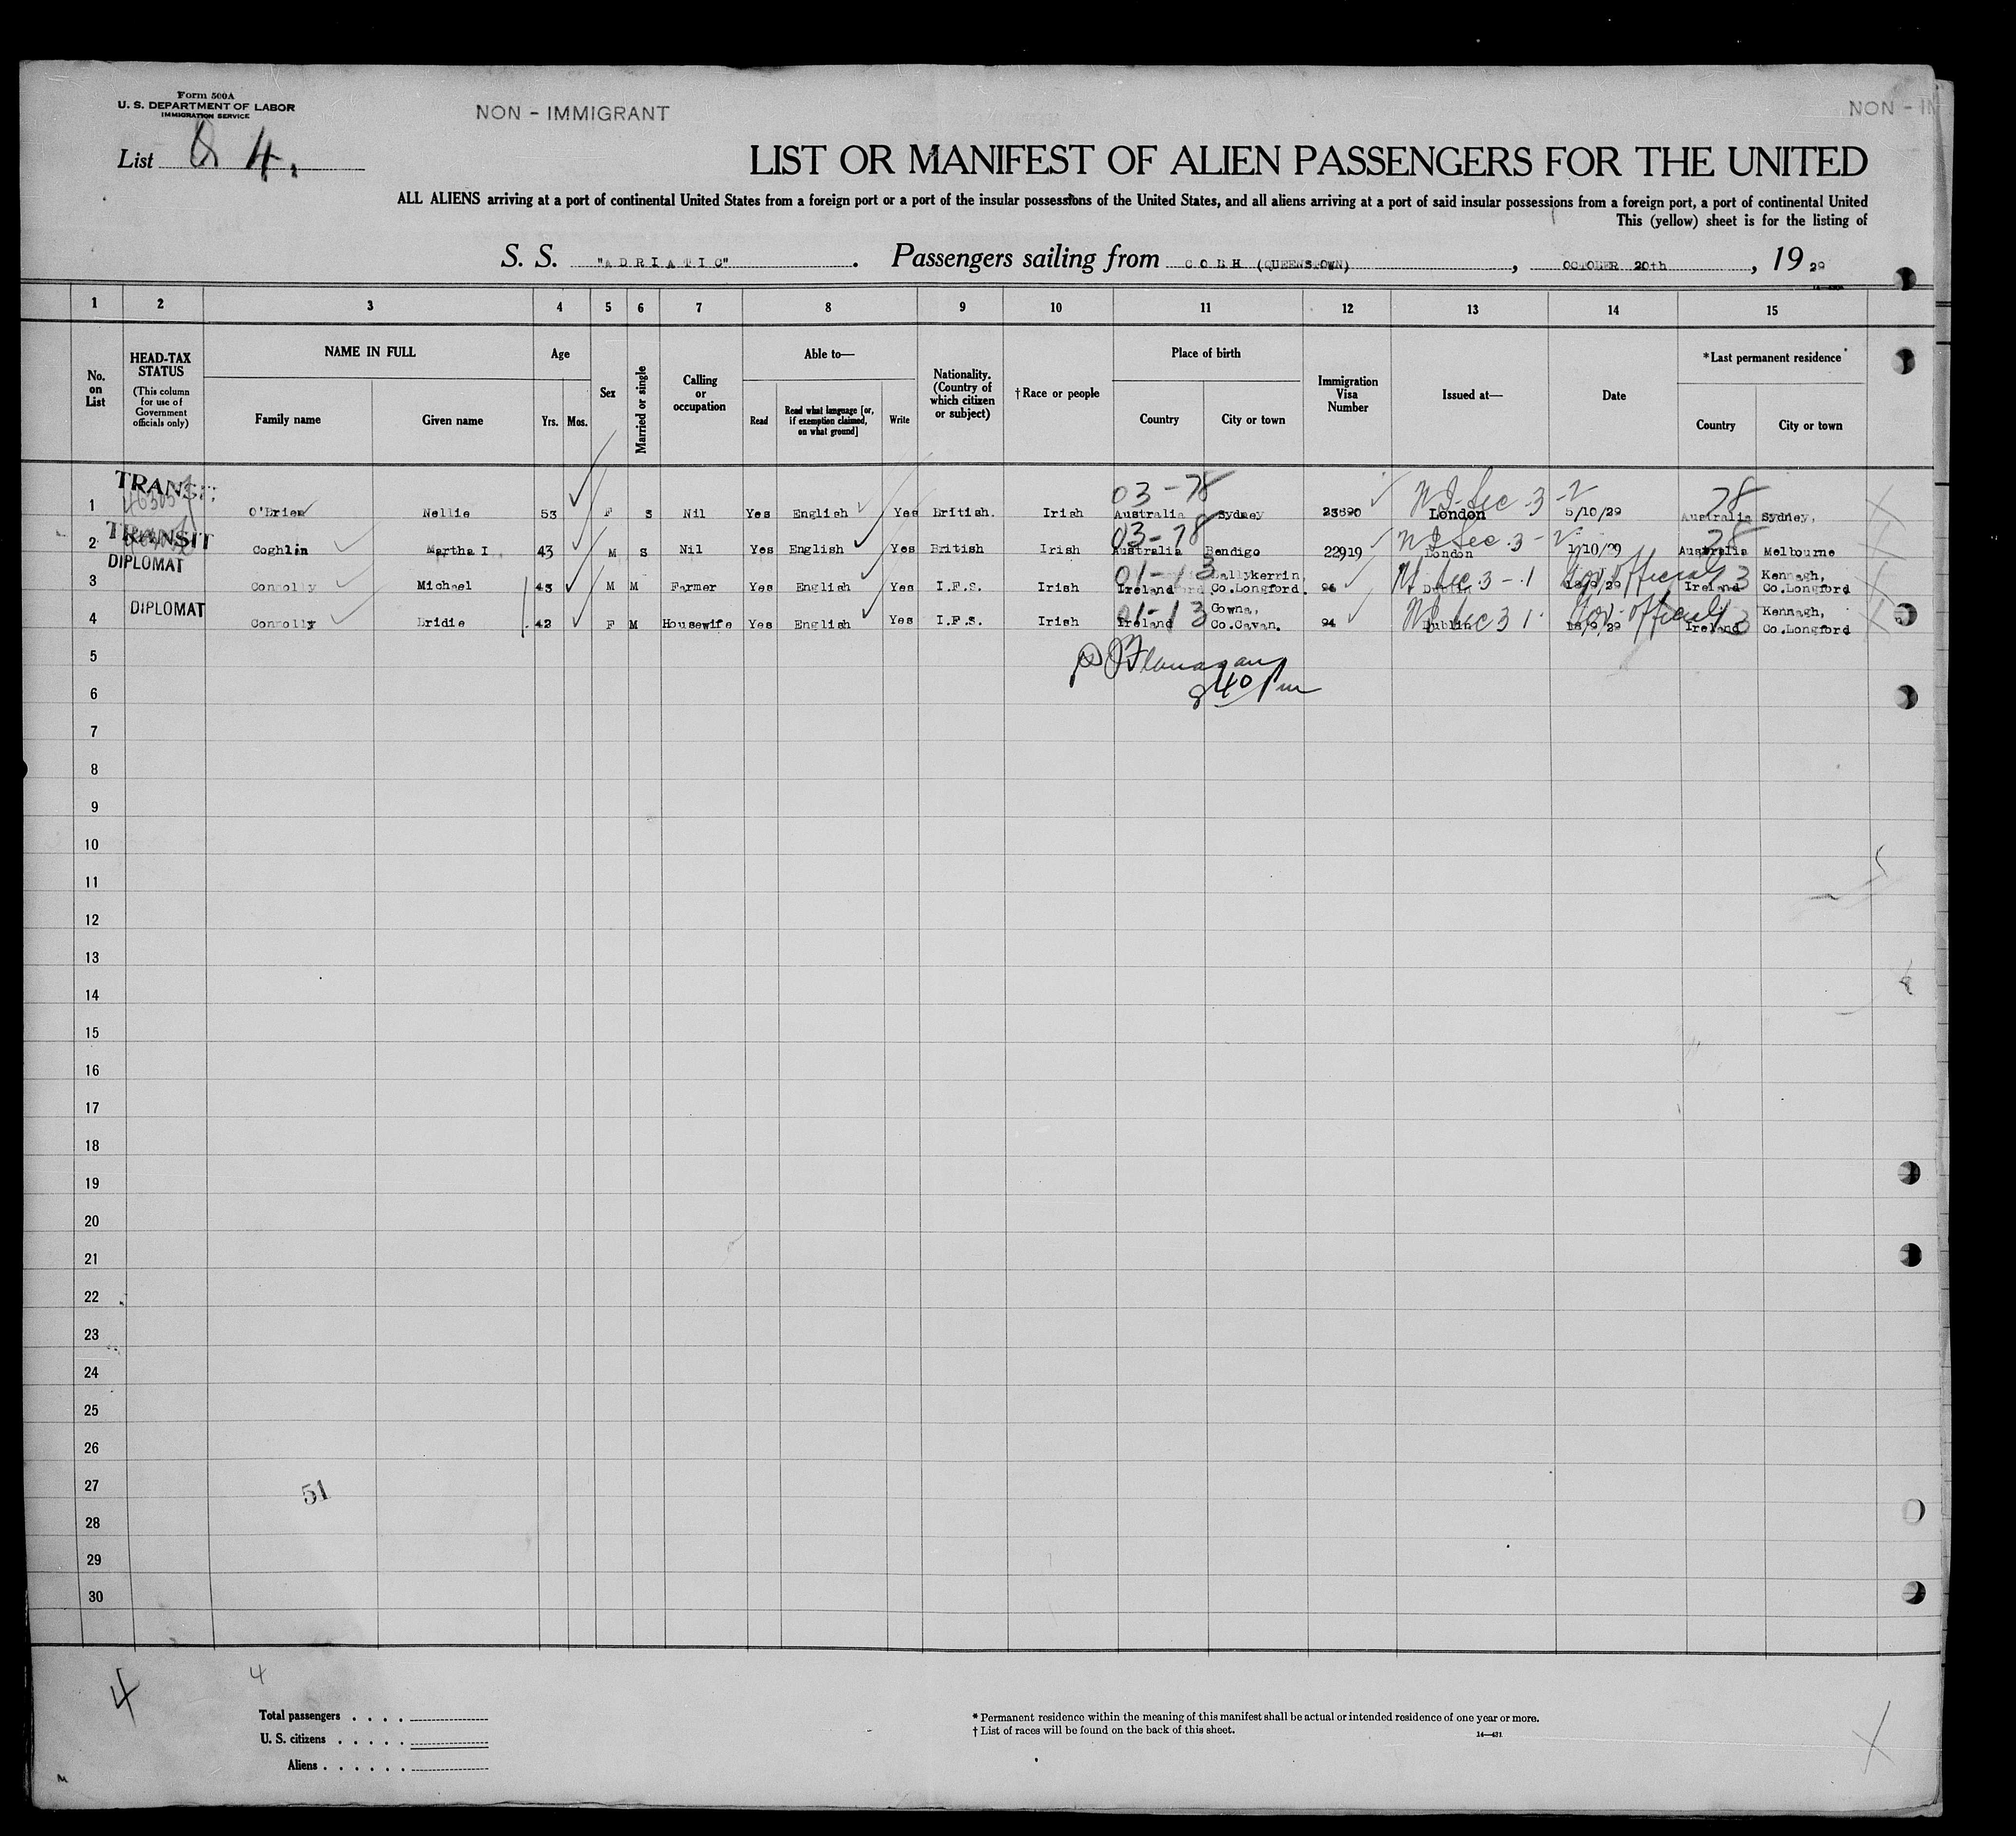 Form 500A
U. S. DEPARTMENT OF LABOR
IMMIGRATION SERVICE
NON - IMMIGRANT
NON - IM
List 4.
LIST OR MANIFEST OF ALIEN PASSENGERS FOR THE UNITED
ALL ALIENS arriving at a port of continental United States from a foreign port or a port of the insular possessions of the United States, and all aliens arriving at a port of said insular possessions from a foreign port, a port of continental United
This (yellow) sheet is for the listing of
S. S. "ADRIATIC". Passengers sailing from COBH (QUEENSTOWN), OCTOBER 20th, 19 29
1 2 3 4 5 6 7 8 9 10 11 12 13 14 15
No. on List
HEAD-TAX STATUS
(This column for use of Government officials only)
NAME IN FULL
Family name
Given name
Age
Yrs. Mos.
Sex
Married or single
Calling or occupation
Able to—
Read
Read what language [or, if exemption claimed, on what ground]
Write
Nationality. (Country of which citizen or subject)
†Race or people
Place of birth
Country
City or town
Immigration Visa Number
Issued at—
Date
*Last permanent residence
Country
City or town
03-78 28
1 TRANSIT O'Brien Nellie 53 F S Nil Yes English Yes British. Irish Australia Sydney 23690 London 5/10/29 Australia Sydney,
03-78 28
2 TRANSIT Coghlin Martha I 43 M S Nil Yes English Yes British Irish Australia Bendigo 22919 London 1/10/29 Australia Melbourne
01-13
3 DIPLOMAT Connolly Michael 43 M M Farmer Yes English Yes I.F.S. Irish Ireland Ballykerrin, Co.Longford. Dublin Gov official Ireland Kennagh, Co.Longford
01-13
4 DIPLOMAT Connolly Bridie 42 F M Housewife Yes English Yes I.F.S. Irish Ireland Gowna, Co.Cavan. 94 Dublin Gov. official Ireland Kennagh, Co.Longford
5
Flanagan
6
840 Pm
7
8
9
10
11
12
13
14
15
16
17
18
19
20
21
22
23
24
25
26
27
51
28
29
30
4
4
Total passengers . . . .
U. S. citizens . . . . .
Aliens . . . . . .
* Permanent residence within the meaning of this manifest shall be actual or intended residence of one year or more.
† List of races will be found on the back of this sheet.
14—431